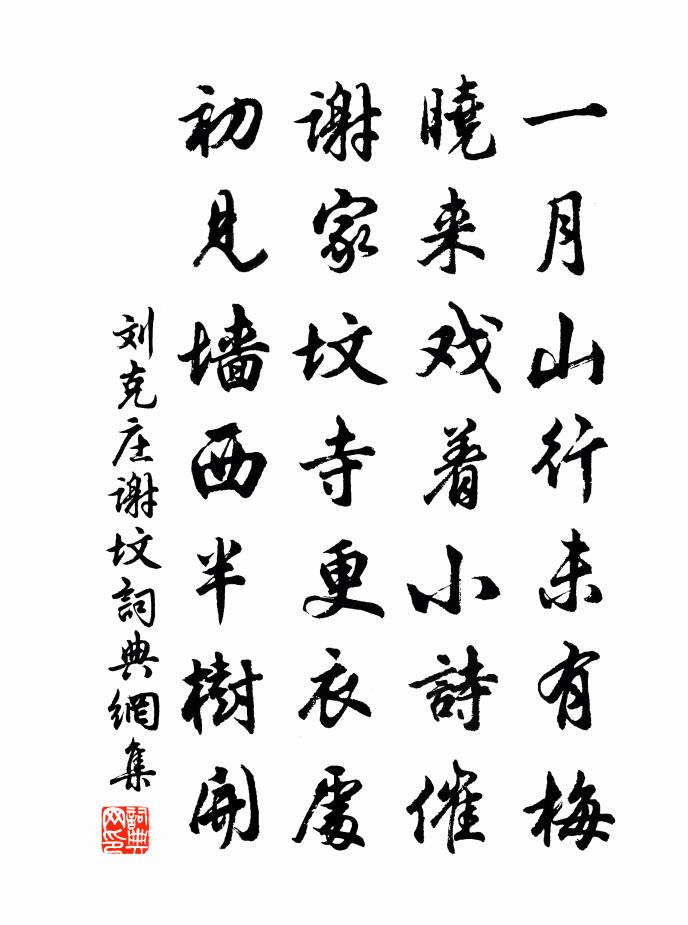 一月山行未有梅
曉来戏着小詩催
謝家坟寺更衣處
初見墙西半樹開
刘克庄謝坟詞典網集
詞典网印